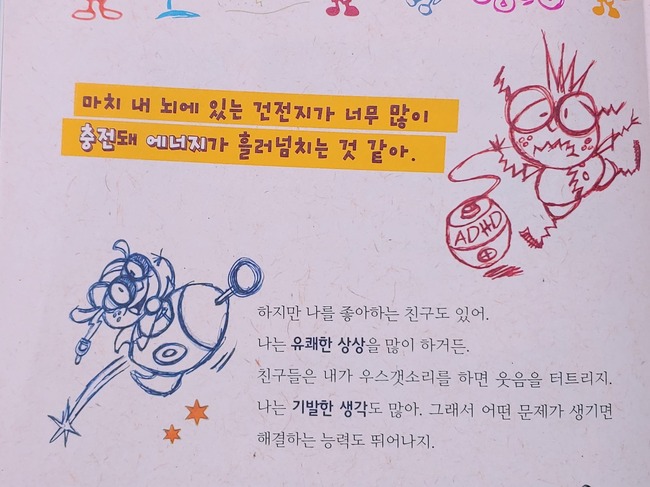 마치 내 뇌에 있는 건전지가 너무 많이
충전돼 에너지가 흘러넘치는 것 같아.
ADHD
하지만 나를 좋아하는 친구도 있어.
나는 유쾌한 상상을 많이 하거든.
친구들은 내가 우스갯소리를 하면 웃음을 터트리지.
나는 기발한 생각도 많아. 그래서 어떤 문제가 생기면
해결하는 능력도 뛰어나지.